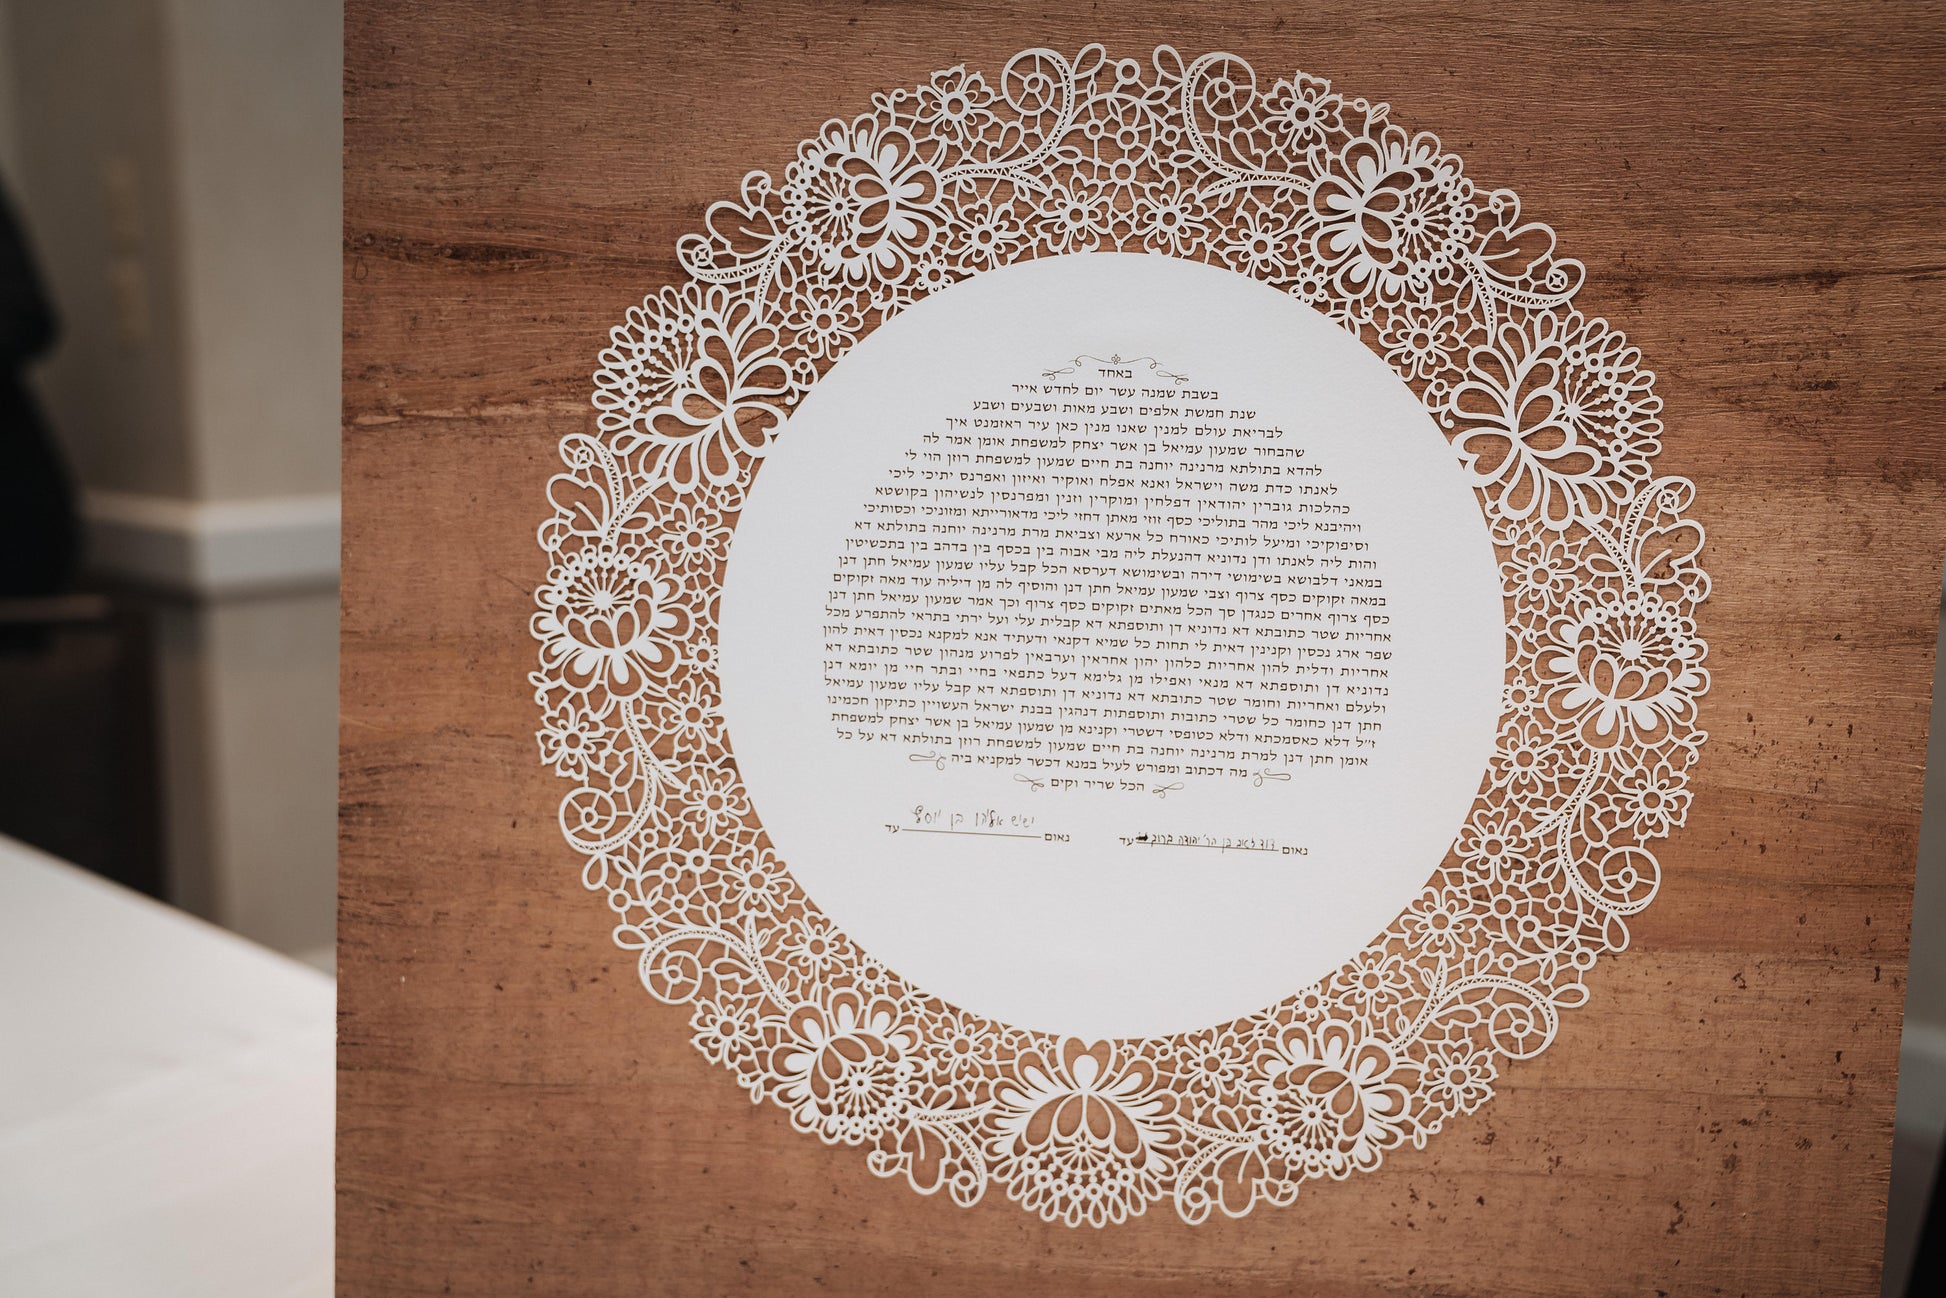 באחד
בשבת שמנה עשר יום לחדש אייר
שנת חמשת אלפים ושבע מאות ושבעים ושבע
לבריאת עולם למנין שאנו מנין כאן עיר ראזמנט איך
שהבחור שמעון עמיאל בן אשר יצחק למשפחת אומן אמר לה
להדא בתולתא מרנינה יוחנה בת חיים שמעון למשפחת רוזן הוי לי
לאנתו כדת משה וישראל ואנא אפלח ואוקיר ואיזון ואפרנס יתיכי ליכי
כהלכות גוברין יהודאין דפלחין ומוקרין וזנין ומפרנסין לנשיהון בקושטא
ויהיבנא ליכי מהר בתוליכי כסף זוזי מאתן דחזי ליכי מדאורייתא ומזוניכי וכסותיכי
וסיפוקיכי ומיעל לותיכי כאורח כל ארעא וצביאת מרת מרנינה יוחנה בתולתא דא
והות ליה לאנתו ודן נדוניא דהנעלת ליה מבי אבוה בין בכסף בין בדהב בין בתכשיטין
במאני דלבושא בשימושי דירה ובשימושא דערסא הכל קבל עליו שמעון עמיאל חתן דנן
במאה זקוקים כסף צרוף וצבי שמעון עמיאל חתן דנן והוסיף לה מן דיליה עוד מאה זקוקים
כסף צרוף אחרים כנגדן סך הכל מאתים זקוקים כסף צרוף וכך אמר שמעון עמיאל חתן דנן
אחריות שטר כתובתא דא נדוניא דן ותוספתא דא קבלית עלי ועל ירתי בתראי להתפרע מכל
שפר ארג נכסין וקנינין דאית לי תחות כל שמיא דקנאי ודעתיד אנא למקנא נכסין דאית להון
אחריות ודלית להון אחריות כלהון יהון אחראין וערבאין לפרוע מנהון שטר כתובתא דא
נדוניא דן ותוספתא דא מנאי ואפילו מן גלימא דעל כתפאי בחיי ובתר חיי מן יומא דנן
ולעלם ואחריות וחומר שטר כתובתא דא נדוניא דן ותוספתא דא קבל עליו שמעון עמיאל
חתן דנן כחומר כל שטרי כתובות ותוספתות דנהגין בבנת ישראל העשויין כתיקון חכמינו
ז״ל דלא כאסמכתא ודלא כטופסי דשטרי וקנינא מן שמעון עמיאל בן אשר יצחק למשפחת
אומן חתן דנן למרת מרנינה יוחנה בת חיים שמעון למשפחת רוזן בתולתא דא על כל
מה דכתוב ומפורש לעיל במנא דכשר למקניא ביה
הכל שריר וקים
נאום דוד זאב בן הר׳ יהודה ברוך עד
נאום ישיש אליהו בן יוסף עד